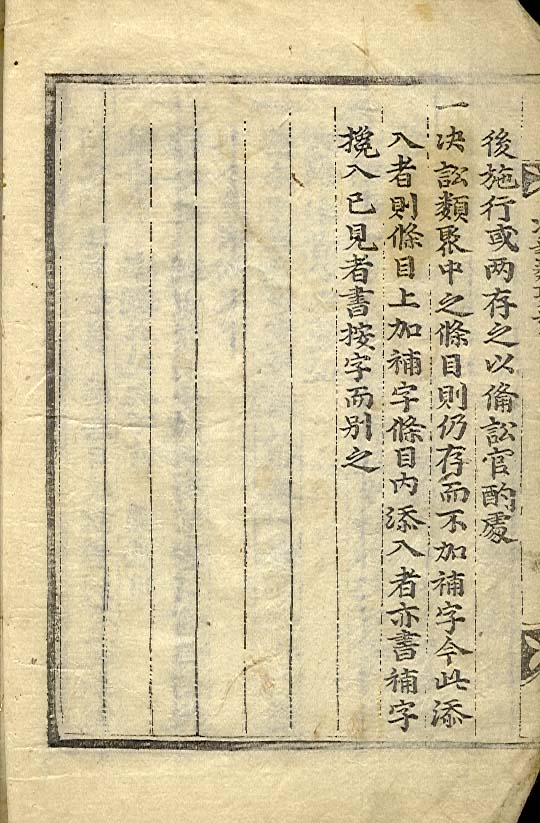 後施行或两存之以俻訟官酌處
一决訟類聚中之條目則仍存而不加補字今此添
入者則條目上加補字條目内添入者亦書補字
攙入已見者書按字而别之